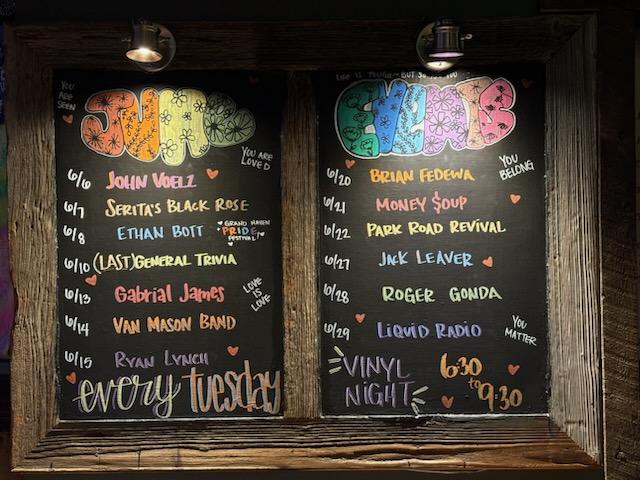 YOU
ARE
SEEN
JUNE
YOU ARE
LOVED
6/6 JOHN VOELZ
6/7 SERITA'S BLACK ROSE
6/8 ETHAN BOTT
GRAND HAVEN
PRIDE
FESTIVAL!
6/10 (LAST) GENERAL TRIVIA
6/13 GABRIAL JAMES
LOVE
IS
LOVE
6/14 VAN MASON BAND
6/15 RYAN LYNCH
every tuesday
LIFE IS TOUGH~BUT SO ARE YOU
EVENTS
YOU
BELONG
6/20 BRIAN FEDEWA
6/21 MONEY $OUP
6/22 PARK ROAD REVIVAL
6/27 JACK LEAVER
6/28 ROGER GONDA
6/29 LIQUID RADIO
YOU
MATTER
VINYL
NIGHT
6:30
to
9:30